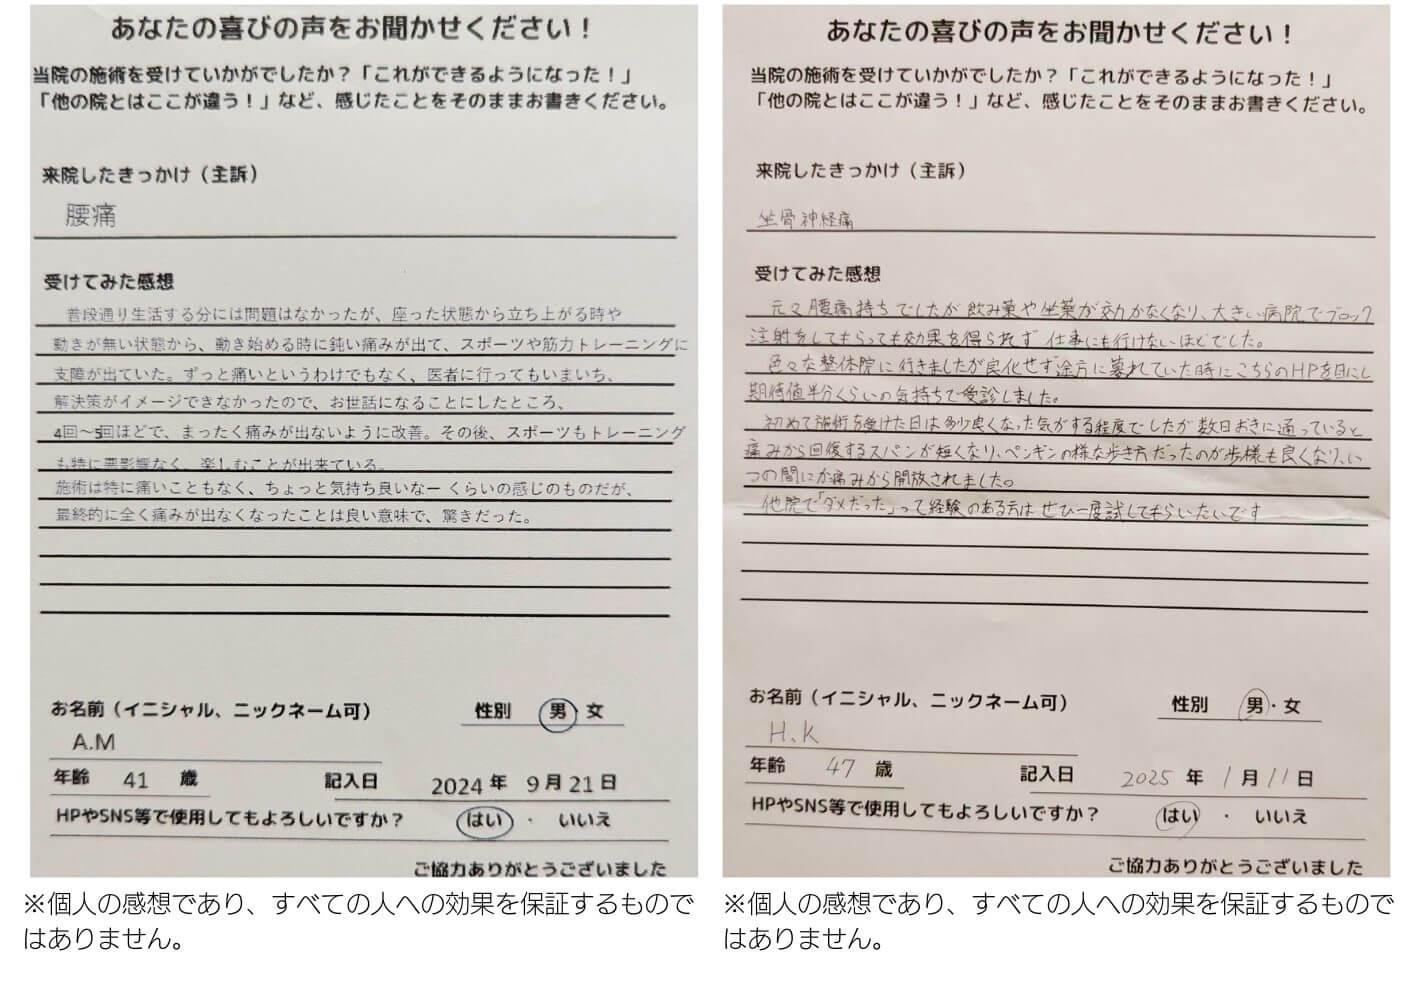 あなたの喜びの声をお聞かせください！
当院の施術を受けていかがでしたか？「これができるようになった！」
「他の院とはここが違う！」など、感じたことをそのままお書きください。
来院したきっかけ（主訴）
腰痛
受けてみた感想
普段通り生活する分には問題はなかったが、座った状態から立ち上がる時や
動きが無い状態から、動き始める時に鈍い痛みが出て、スポーツや筋力トレーニングに
支障が出ていた。ずっと痛いというわけでもなく、医者に行ってもいまいち、
解決策がイメージできなかったので、お世話になることにしたところ、
4回～5回ほどで、まったく痛みが出ないように改善。その後、スポーツもトレーニング
も特に悪影響なく、楽しむことが出来ている。
施術は特に痛いこともなく、ちょっと気持ち良いなー くらいの感じのものだが、
最終的に全く痛みが出なくなったことは良い意味で、驚きだった。
お名前（イニシャル、ニックネーム可）
性別 男・女
A.M
年齢 41 歳
記入日 2024 年 9 月 21 日
HPやSNS等で使用してもよろしいですか？ はい ・ いいえ
ご協力ありがとうございました
※個人の感想であり、すべての人への効果を保証するもので
はありません。
あなたの喜びの声をお聞かせください！
当院の施術を受けていかがでしたか？「これができるようになった！」
「他の院とはここが違う！」など、感じたことをそのままお書きください。
来院したきっかけ（主訴）
坐骨神経痛
受けてみた感想
元々腰痛持ちでしたが飲み薬や坐薬が効かなくなり、大きい病院でブロック
注射をしてもらっても効果を得られず 仕事にも行けないほどでした。
色々な整体院に行きましたが良化せず途方に暮れていた時にこちらのHPを目にし
期待値半分くらいの気持ちで受診しました。
初めて施術を受けた日は多少良くなった気がする程度でしたが数日おきに通っていると
痛みから回復するスパンが短くなり、ペンギンの様な歩き方だったのが歩様も良くなり、い
つの間にか痛みから開放されました。
他院で「ダメだった」って経験のある方は ぜひ一度試してもらいたいです
お名前（イニシャル、ニックネーム可）
性別 男・女
H.K
年齢 47 歳
記入日 2025 年 1 月 11 日
HPやSNS等で使用してもよろしいですか？ はい ・ いいえ
ご協力ありがとうございました
※個人の感想であり、すべての人への効果を保証するもので
はありません。